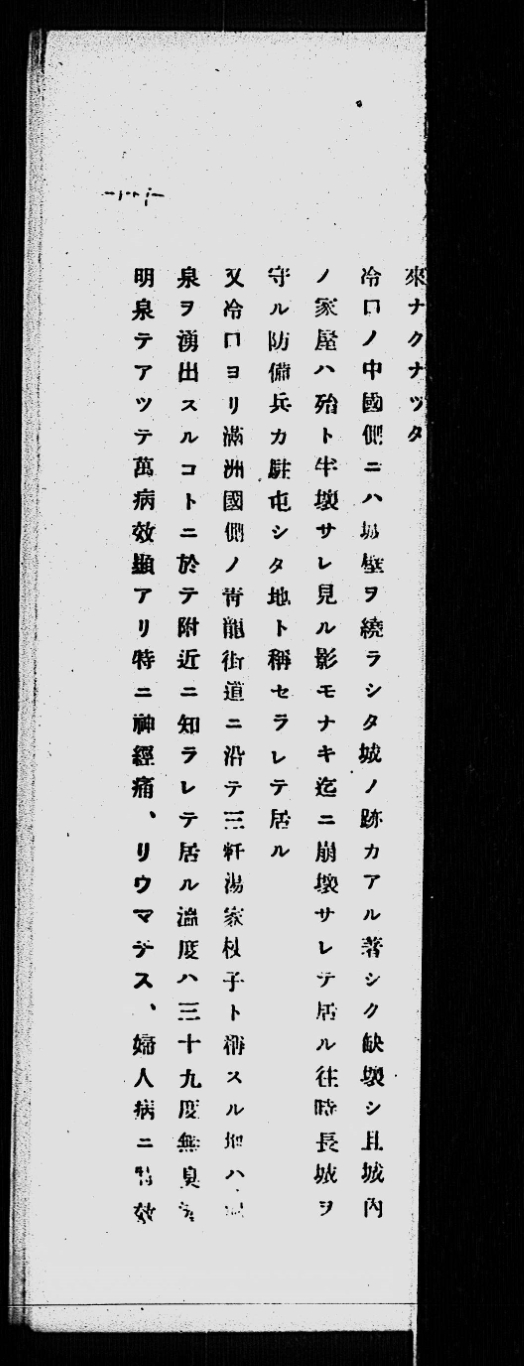 來ナクナツタ
冷口ノ中國側ニハ城壁ヲ繞ラシタ城ノ跡カアル著シク缺壞シ且城內
ノ家屋ハ殆ト半壞サレ見ル影モナキ迄ニ崩壞サレテ居ル往時長城ヲ
守ル防備兵カ駐屯シタ地ト稱セラレテ居ル
又冷口ヨリ滿洲國側ノ靑龍街道ニ沿テ三軒湯家杖子ト稱スル地ハ
泉ヲ湧出スルコトニ於テ附近ニ知ラレテ居ル溫度ハ三十九度無臭
明泉テアツテ萬病效顯アリ特ニ神經痛、リウマチス、婦人病ニ特效